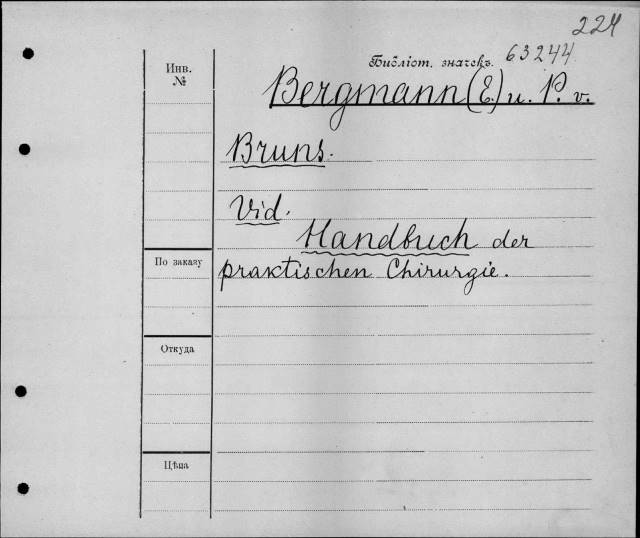 224
Библіот. значекъ. 63244
Инв.
№
Bergmann (E.) u. P. v.
Bruns.
Vid.
Handbuch der
По заказу
praktischen Chirurgie.
Откуда
Цѣна